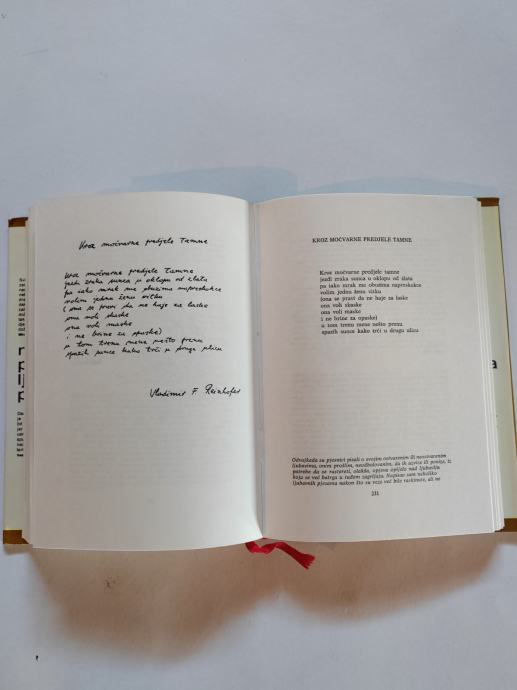 Kroz močvarne predjele Tamne
Kroz močvarne predjele Tamne
jezdi zraka sunca u oklopu od zlata
pa iako mrak me obuzima naprekokce
volim jednu ženu vitku
(ona se pravi da ne haje za laske
ona voli skaske
ona voli maske
i ne brine za opaske)
u tom trenu mene nešto prenu
spazih sunce kako trči u drugu ulicu
Vladimir F Reinhofer
KROZ MOČVARNE PREDJELE TAMNE
Kroz močvarne predjele tamne
jezdi zraka sunca u oklopu od zlata
pa iako mrak me obuzima naprekokce
volim jednu ženu vitku
(ona se pravi da ne haje za laske
ona voli skaske
ona voli maske
i ne brine za opaske)
u tom trenu mene nešto prenu
spazih sunce kako trči u drugu ulicu
Odvajkada su pjesnici pisali o svojim ostvarenim ili neostvarenim
ljubavima, onim prošlim, neodbolovanim, da ih uzvise ili ponize, iz
potrebe da se rastereti, olakša, opjeva opijelo nad ljubavlju
koja se već batrga u tuđem zagrljaju. Napisao sam nekoliko
ljubavnih pjesama nakon što su veze već bile raskinute, ali ne
231